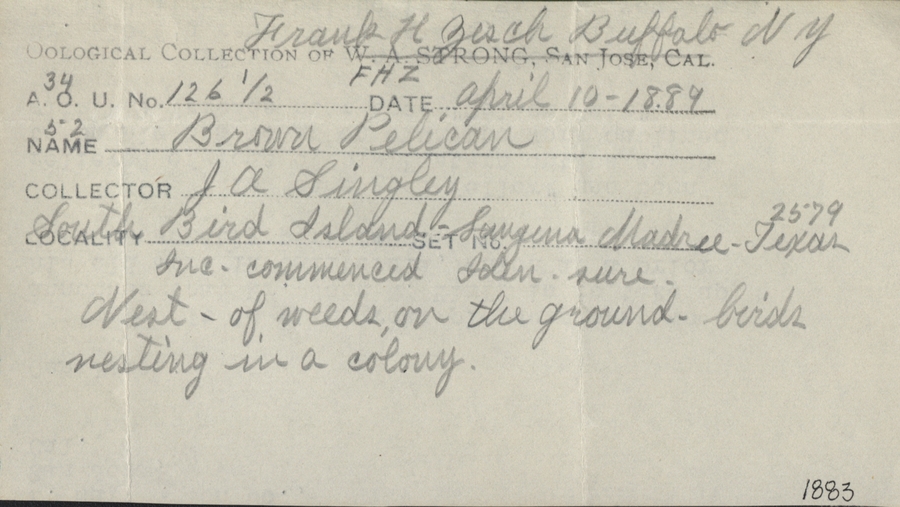 Frank H Zesch Buffalo N Y
OOLOGICAL COLLECTION OF W. A. STRONG, SAN JOSE, CAL.
34 FHZ
A. O. U. No. 126 1/2 DATE April 10-1889
52
NAME Brown Pelican
COLLECTOR J A Singley
2579
LOCALITY South Bird Island - SET No. Laugena Madree - Texas
Inc. commenced Iden. sure.
Nest - of weeds, on the ground - birds
nesting in a colony.
1883